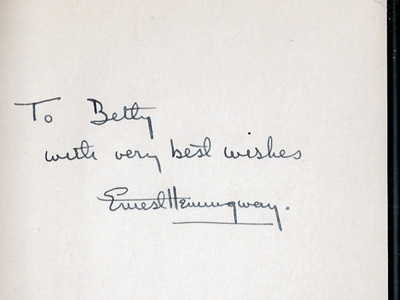 To Betty
with very best wishes
Ernest Hemingway.